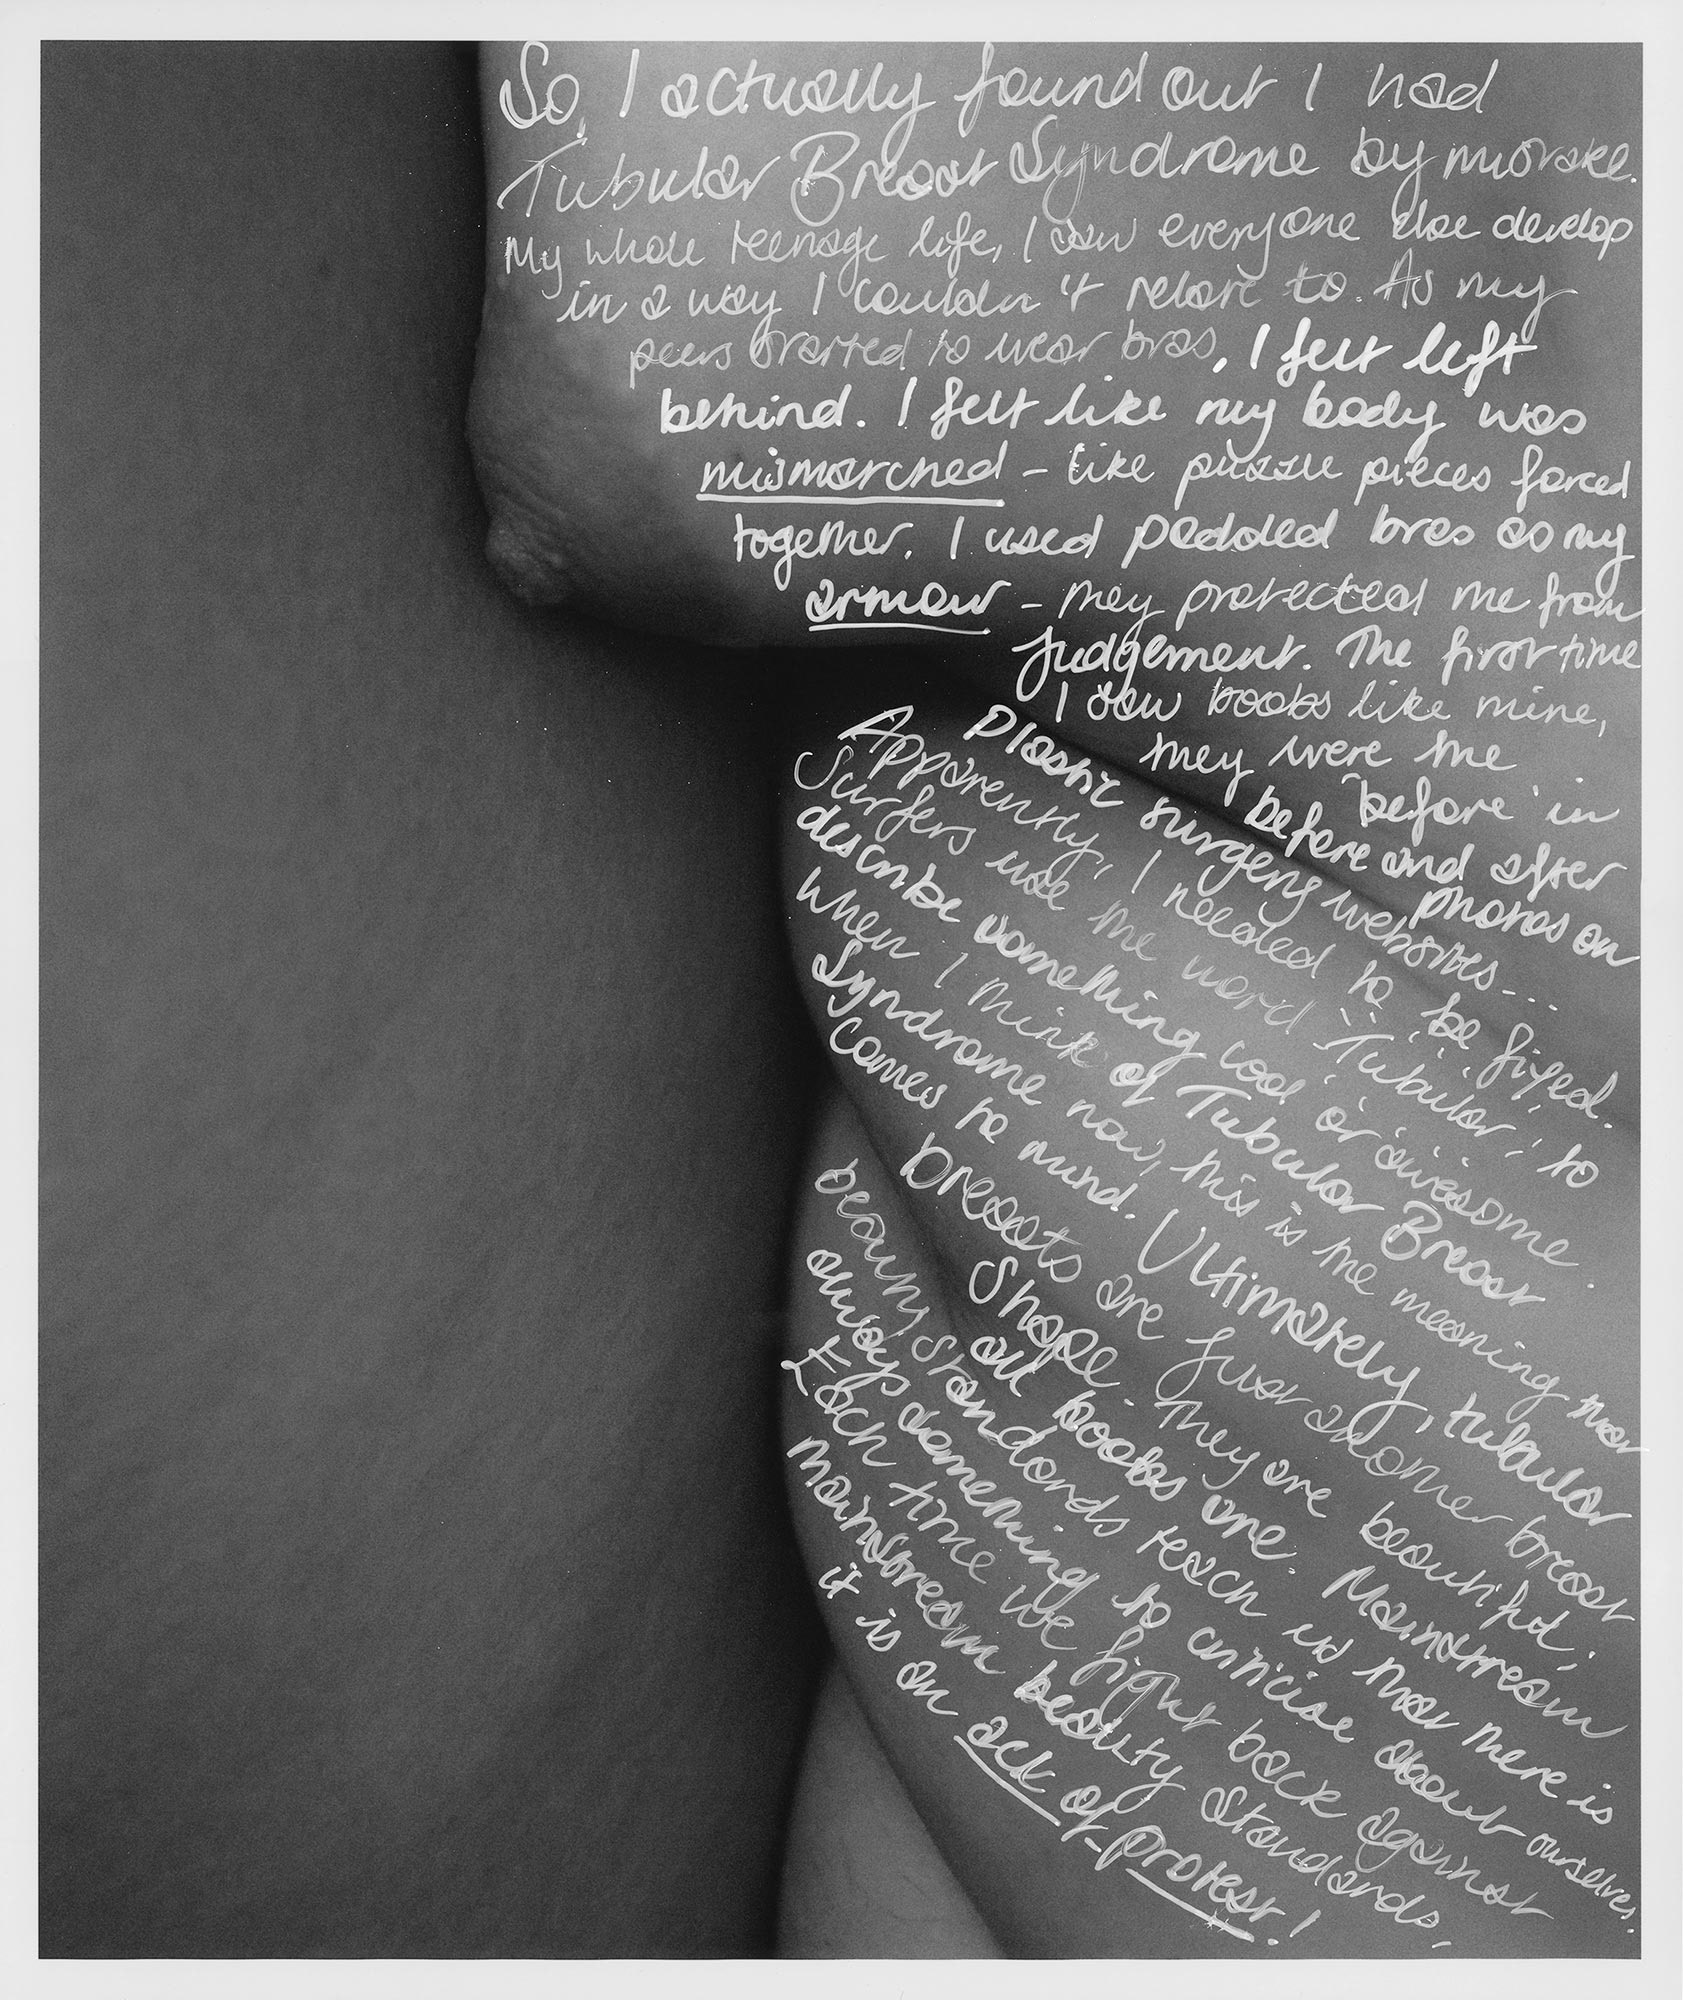 So, I actually found out I had
Tubular Breast Syndrome by mistake.
My whole teenage life, I saw everyone else develop
in a way I couldn't relate to. As my
peers started to wear bras, I felt left
behind. I felt like my body was
mismatched - like puzzle pieces forced
together. I used padded bras as my
armour - they protected me from
judgement. The first time
I saw boobs like mine,
they were the
'before' in
before and after
photos on
Plastic surgery websites...
Apparently, I needed to be fixed.
Surfers use the word 'Tubular', to
describe something cool or awesome.
When I think of Tubular Breast
Syndrome now, this is the meaning that
comes to mind. Ultimately, tubular
breasts are just another breast
shape. They are beautiful;
all boobs are. Mainstream
beauty standards teach us that there is
always something to criticise about ourselves.
Each time we fight back against
mainstream beauty standards,
it is an ack of protest!